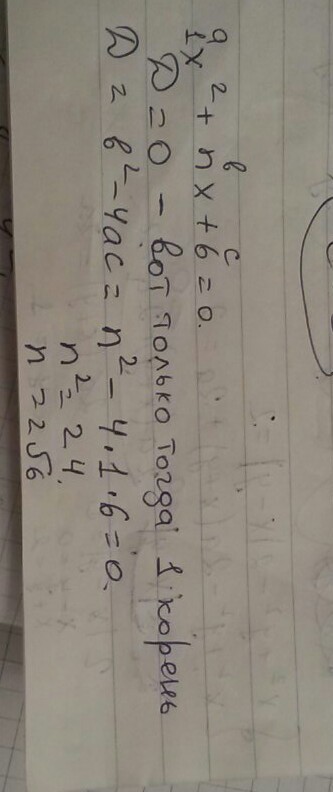 a b c
1x² + nx + 6 = 0.
D = 0 – вот только тогда 1 корень
D = b² – 4ac = n² – 4·1·6 = 0.
n² = 24.
n = 2√6